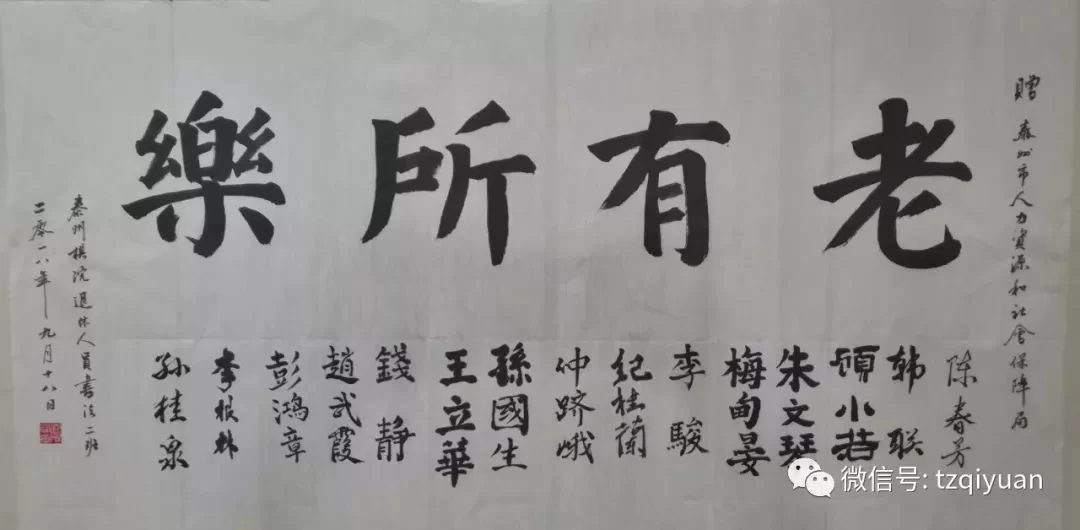 贈 泰州市人力資源和社會保障局
老有所樂
陈春芳
韩联
顾小若
朱文琹
梅甸晏
李駿
纪桂蘭
仲跻峨
孫國生
王立華
錢靜
趙武霞
彭鴻章
李根林
孙桂泉
泰州棋院退休人員書法二班
二零一八年九月十八日
微信号: tzqiyuan